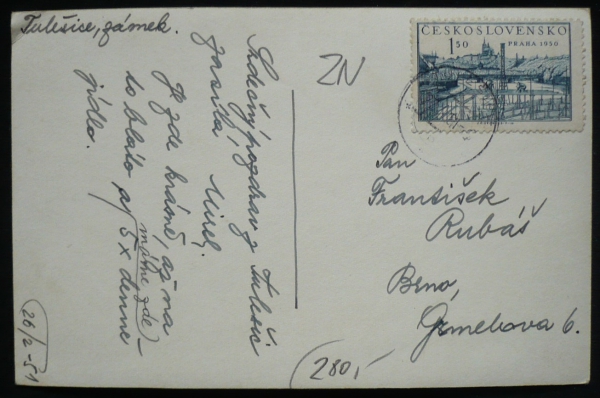 Tulešice, zámek.
Srdečný pozdrav z Tulešic
zasílá,
Mirek,
Je zde krásně, až na
to bláto a
máme zde
5x denně
jídlo.
26/2-51
ZN
ČESKOSLOVENSKO
1 50
PRAHA 1950
Pan
František
Rubáš
Brno,
6.
280,-